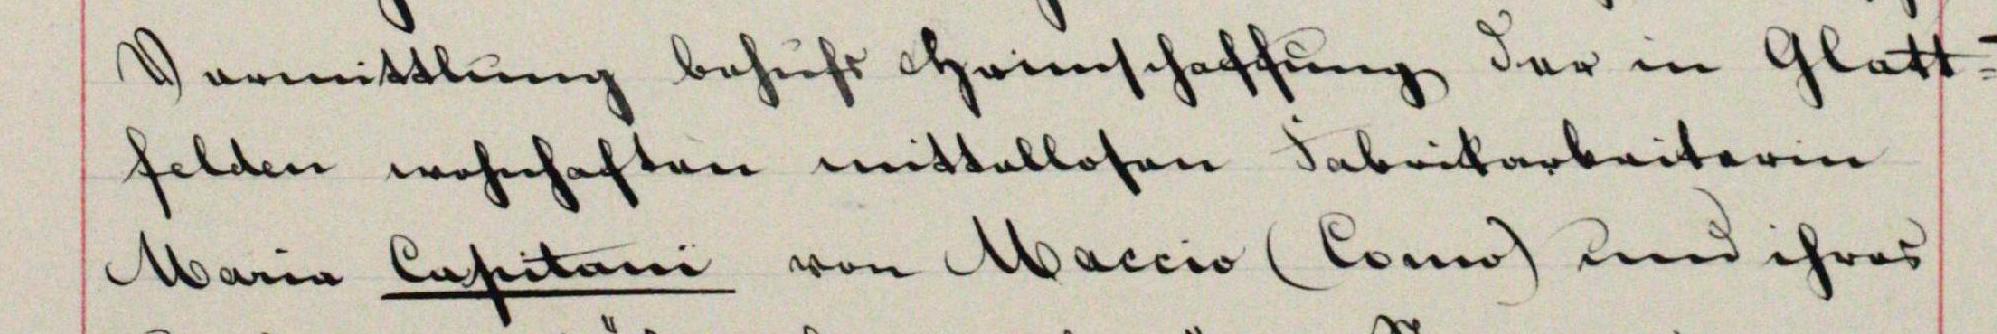 Vermittlung behufs Heimschaffung der in Glatt-
felden wohnhaften mittellosen Fabrikarbeiterin
Maria Capitani von Maccio (Como) und ihres